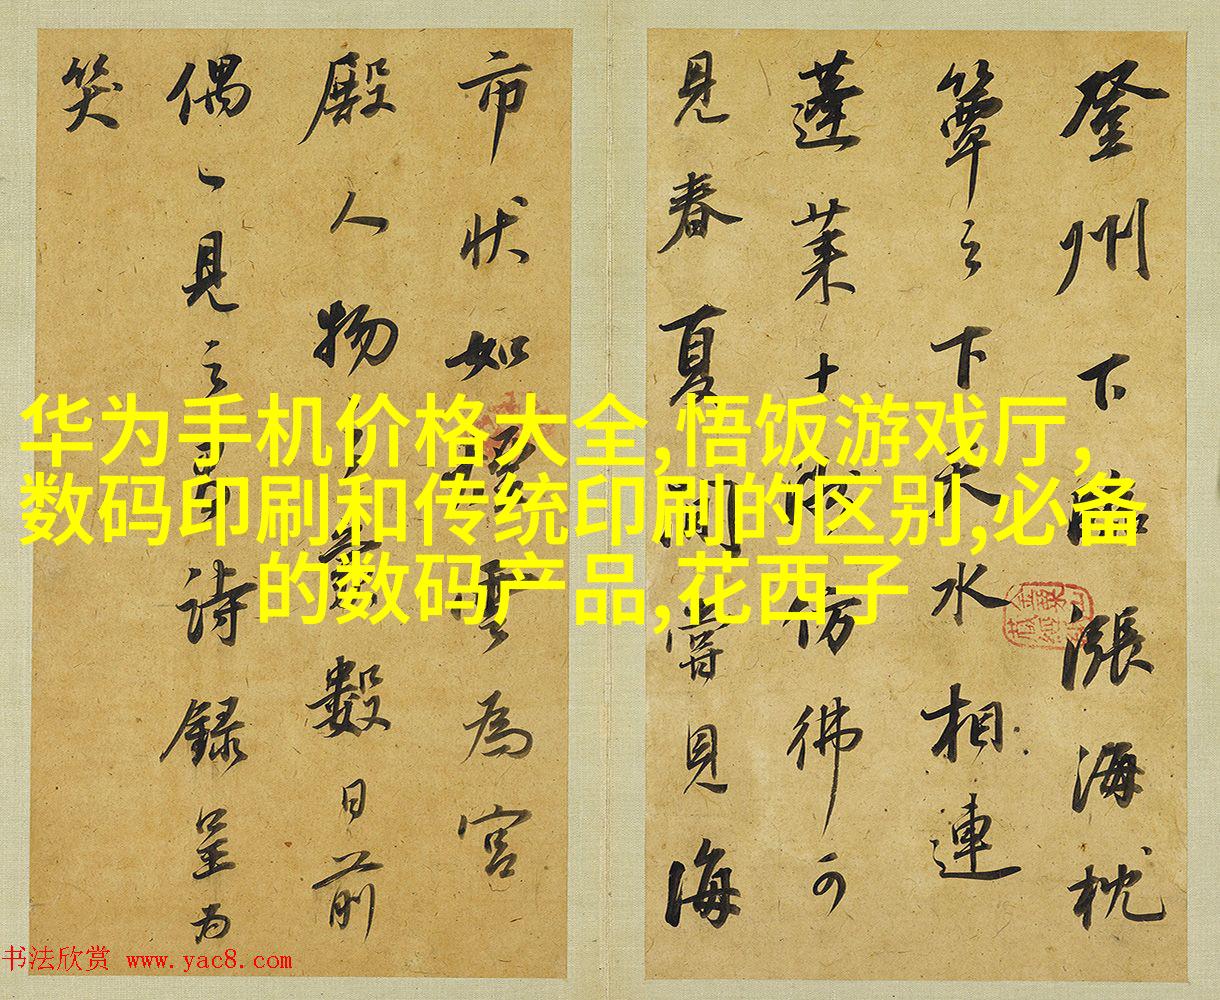 登州下临涨海枕
簟之下天水相連
蓬莱十洲仿彿可
見春夏間嘗見海
市状如
雲為宫
殿人物
數日前
偶
見之
詩録呈为
笑
华为手机价格大全,悟饭游戏厅,
数码印刷和传统印刷的区别,必备
的数码产品,花西子
书法欣赏 www.yac8.com